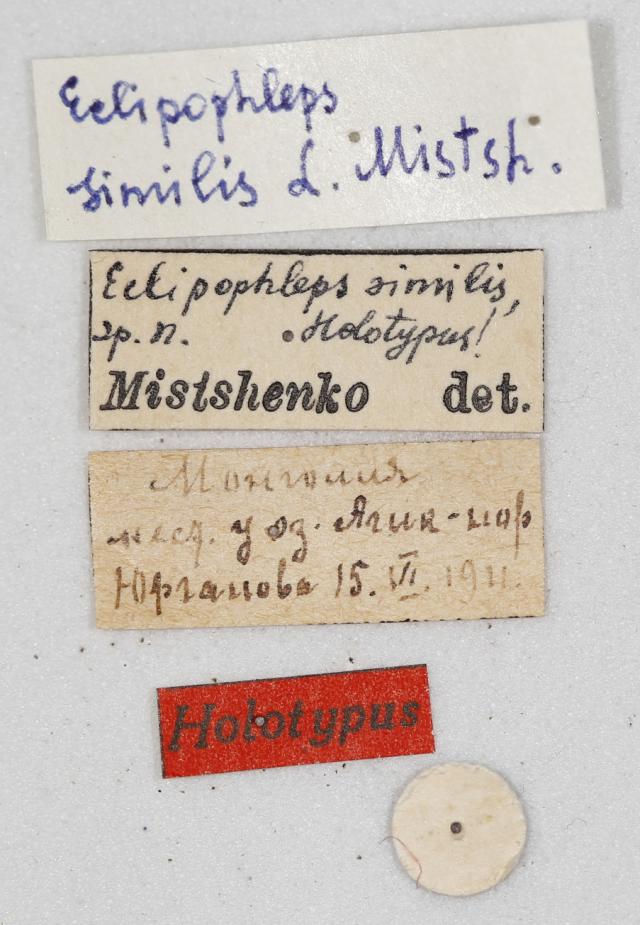 Eclipophleps
similis L. Mistsh.
Eclipophleps similis,
sp. n. Holotypus!
Mistshenko det.
Монголия
у оз. Агик-нор
Юрганова 15. VI. 1911.
Holotypus